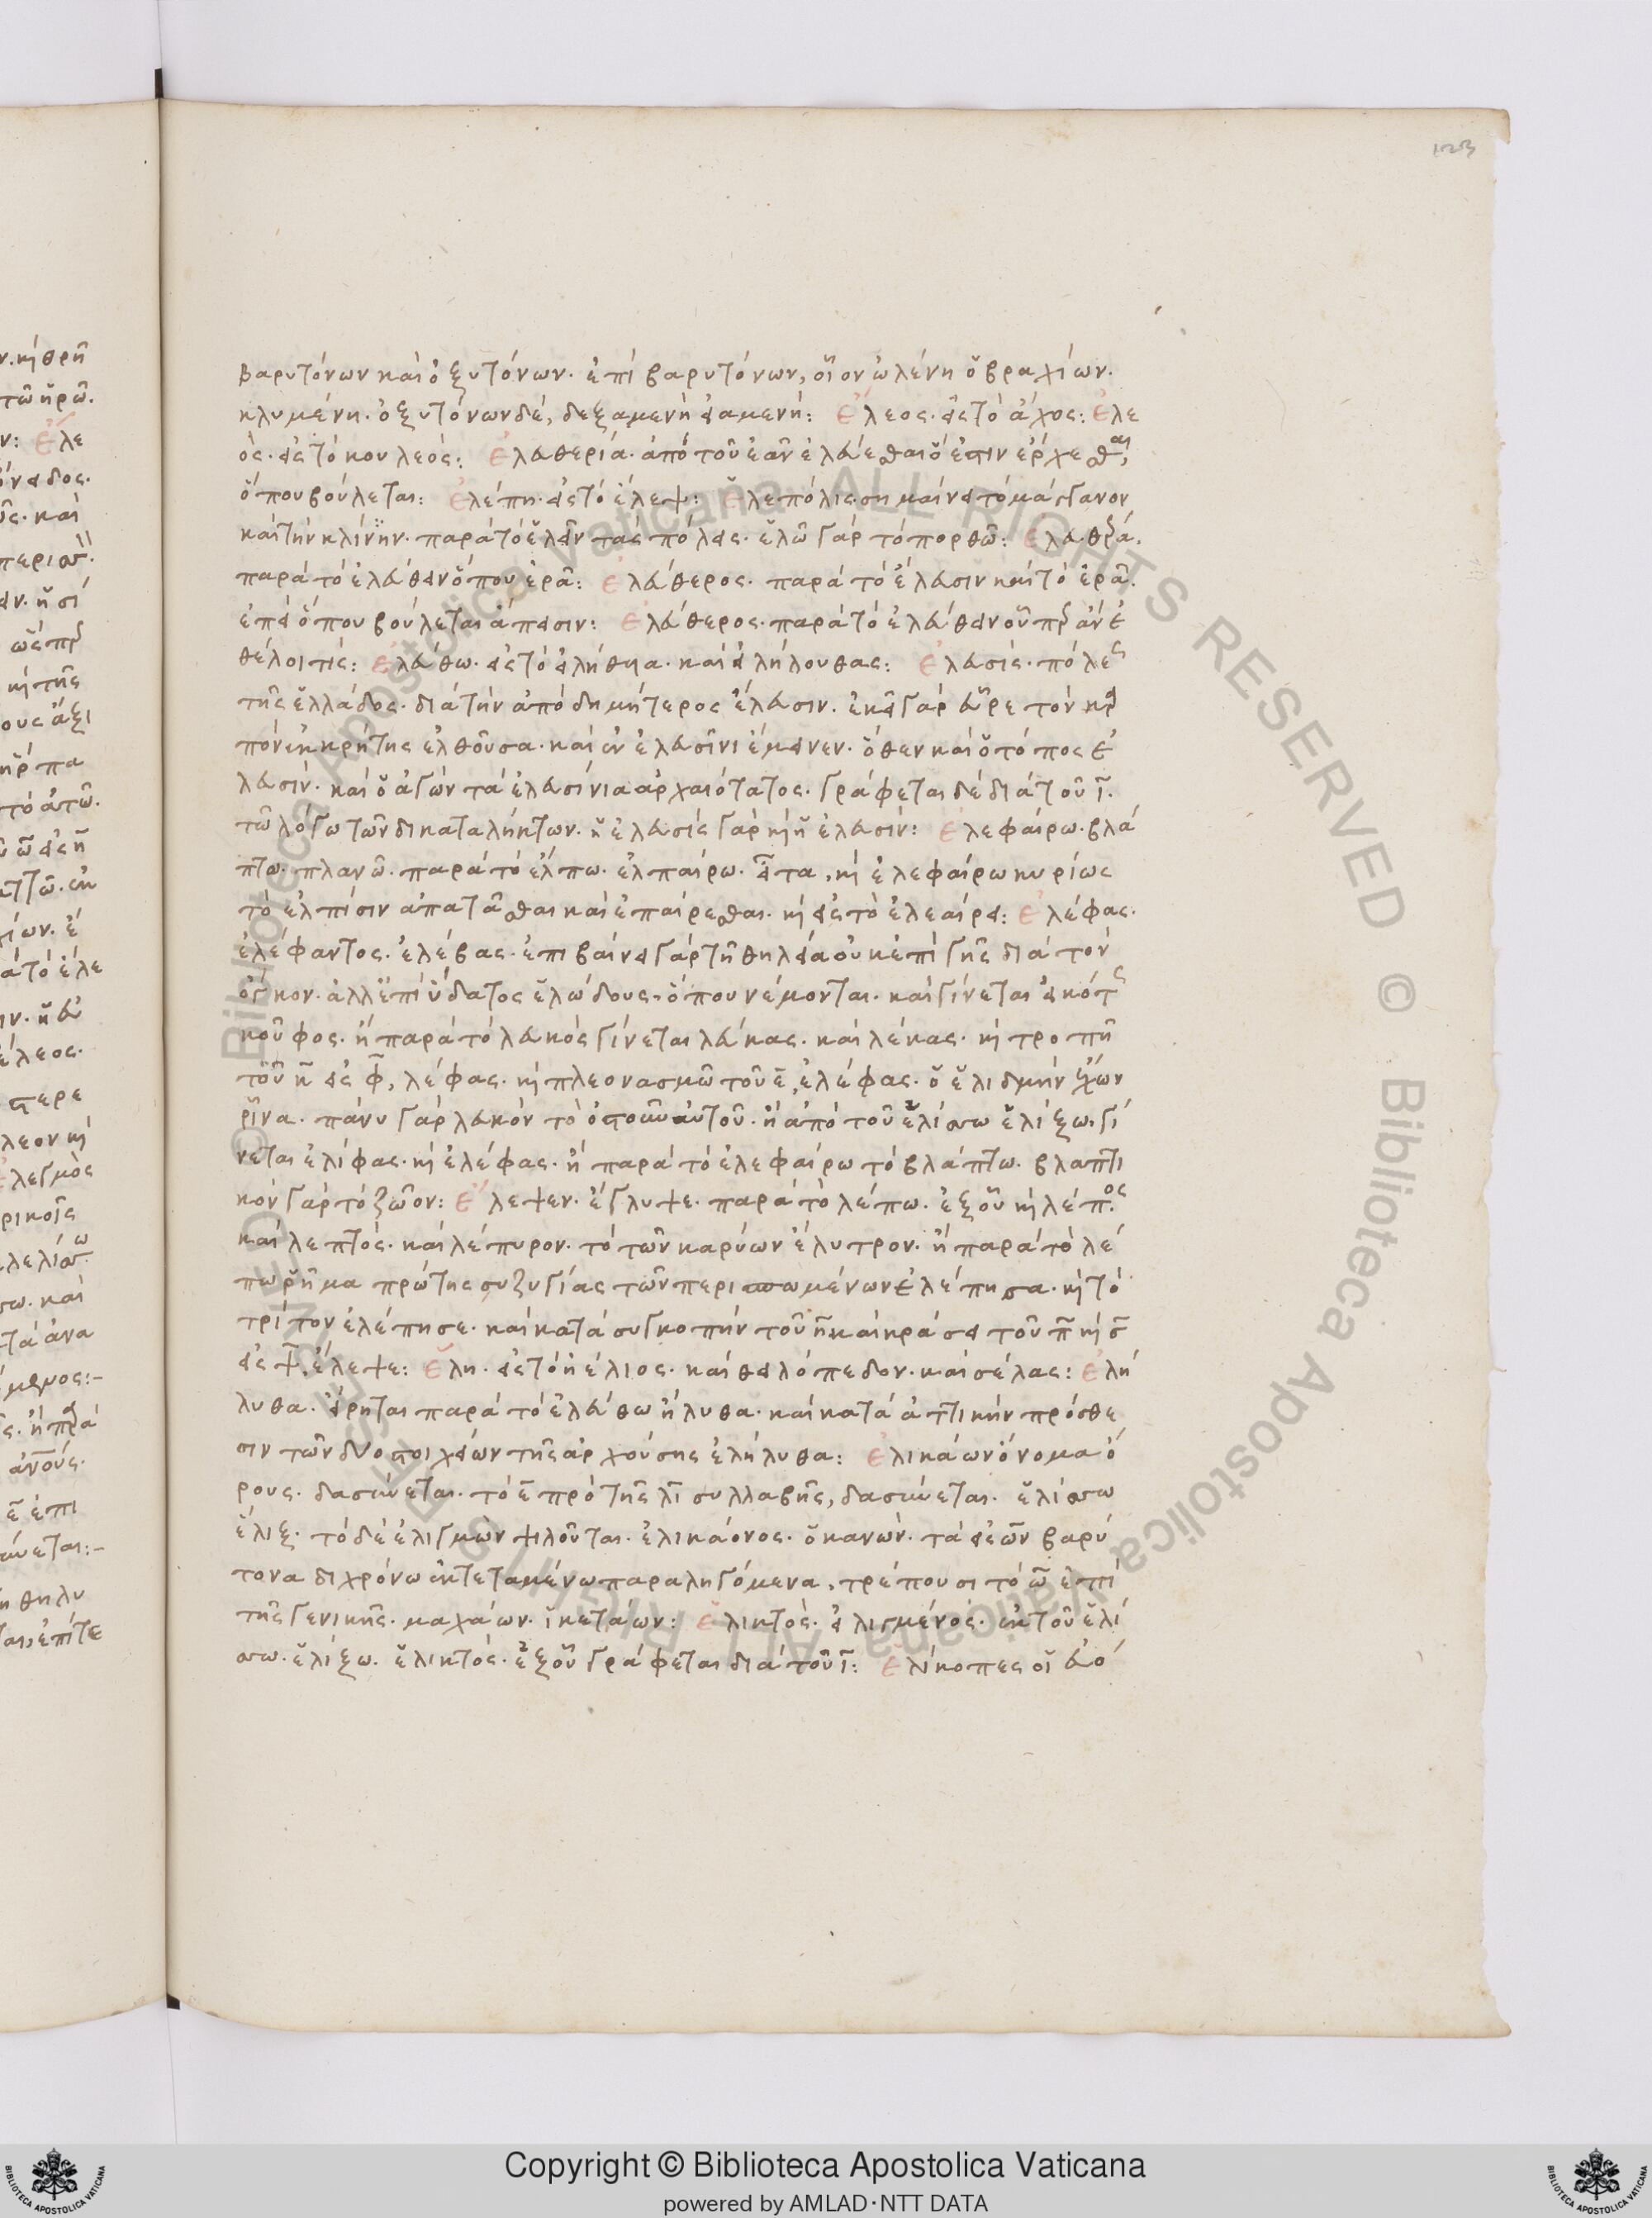 123
βαρυτόνων καὶ ὀξυτόνων. ἐπὶ βαρυτόνων, οἷον ὠλένη ὁ βραχίων.
κλυμένη. ὀξυτόνων δέ, δεξαμενὴ εἱαμενή: ἔλεος. εἰς τὸ ἄχος: ἐλε
ός. εἰς τὸ κουλεός: ἐλευθερία. ἀπὸ τοῦ ἐᾶν ἐλεύεσθαι ὅ ἐστιν ἔρχεσθαι,
ὅπου βούλεται: ἐλέπη. εἰς τὸ ἔλεψ: ἑλεπόλις. σημαίνει τὸ μάγγανον
καὶ τὴν κλίνην. παρὰ τὸ ἑλεῖν τὰς πόλεις. ἑλῶ γὰρ τὸ πορθῶ: ἐλευθερά.
παρὰ τὸ ἐλεύθειν ὅπου ἐρᾷ: ἐλεύθερος. παρὰ τὸ ἔλευσιν καὶ τὸ ἐρᾶν.
ἐπεὶ ὅπου βούλεται ἄπεισιν: ἐλεύθερος. παρὰ τὸ ἐλεύθειν οὗπερ ἂν ἐ
θέλοι τίς: ἐλεύθω. εἰς τὸ εἰλήθυια. καὶ εἰλήλουθας: ἐλευσίς. πόλις
τῆς ἑλλάδος. διὰ τὴν ἀπὸ δημήτερος ἔλευσιν. ἐκεῖ γὰρ εὗρε τὸν καρ
πὸν ἐκ κρήτης ἐλθοῦσα. καὶ ἐν ἐλευσῖνι ἔμεινεν. ὅθεν καὶ ὁ τόπος ἐ
λευσίν. καὶ ὁ ἀγὼν τὰ ἐλευσίνια ἀρχαιότατος. γράφεται δὲ διὰ τοῦ ῑ.
τῶ λόγω τῶν δικαταλήκτων. ἡ ἐλευσίς γὰρ καὶ ἡ ἐλευσίν: ἐλεφαίρω. βλά
πτω. πλανῶ. παρὰ τὸ ἔλπω. ἐλπαίρω. εἶτα, καὶ ἐλεφαίρω κυρίως
τὸ ἐλπίσιν ἀπατᾶσθαι καὶ ἐπαίρεσθαι. καὶ εἰς τὸ ἐλεαίρει: ἐλέφας.
ἐλέφαντος. ἐλέβας. ἐπιβαίνει γὰρ τῇ θηλείᾳ οὐκ ἐπὶ γῆς διὰ τὸν
ὄγκον. ἀλλ' ἐπὶ ὕδατος ἑλώδους. ὅπου νέμονται. καὶ γίνεται εἰκότως
κοῦφος. ἢ παρὰ τὸ λευκὸς γίνεται λεύκας. καὶ λέκας. καὶ τροπῇ
τοῦ κ̄ εἰς φ̄, λέφας. καὶ πλεονασμῶ τοῦ ε̄, ἐλέφας. ὁ ἑλιγμὴν ἔχων
ῥῖνα. πάνυ γὰρ λευκὸν τὸ ὀστοῦν αὐτοῦ. ἢ ἀπὸ τοῦ ἑλίσσω ἑλίξω, γί
νεται ἐλίφας. καὶ ἐλέφας. ἢ παρὰ τὸ ἐλεφαίρω τὸ βλάπτω. βλαπτι
κὸν γὰρ τὸ ζῶον: ἔλεψεν. ἔγλυψε. παρὰ τὸ λέπω. ἐξ οὗ καὶ λέπος.
καὶ λεπτός. καὶ λέπυρον. τὸ τῶν καρύων ἔλυτρον. ἢ παρὰ τὸ λε
πῶ ῥῆμα πρώτης συζυγίας τῶν περισπωμένων ἐλέπησα. καὶ τὸ
τρίτον ἐλέπησε. καὶ κατὰ συγκοπὴν τοῦ η̄ καὶ κράσει τοῦ π̄ καὶ σ̄
εἰς ψ̄. ἔλεψε: ἕλη. εἰς τὸ ἠέλιος. καὶ θειλόπεδον. καὶ σέλας: ἐλή
λυθα. εἴρηται παρὰ τὸ ἐλεύθω ἤλυθα. καὶ κατὰ ἀττικὴν πρόσθε
σιν τῶν δύο στοιχείων τῆς ἀρχούσης ἐλήλυθα: ἐλικάων ὄνομα ὄ
ρους. δασύνεται. τὸ ε̄ πρὸ τῆς λῑ συλλαβῆς, δασύνεται. ἑλίσσω
ἕλιξ. τὸ δὲ ἐλιγμῶν ψιλοῦται. ἐλικάονος. ὁ κανών. τὰ εἰς ων βαρύ
τονα διχρόνω ἐκτεταμένω παραληγόμενα, τρέπουσι τὸ ω̄ ἐπὶ
τῆς γενικῆς. μαχάων. ἱκεταίων: ἑλικτός. εἱλιγμένος. ἐκ τοῦ ἑλί
σσω. ἑλίξω. ἑλικτός. ἐξ οὗ γράφεται διὰ τοῦ ῑ: ἑλίκοπες οἱ εὐό
Copyright © Biblioteca Apostolica Vaticana
powered by AMLAD·NTT DATA